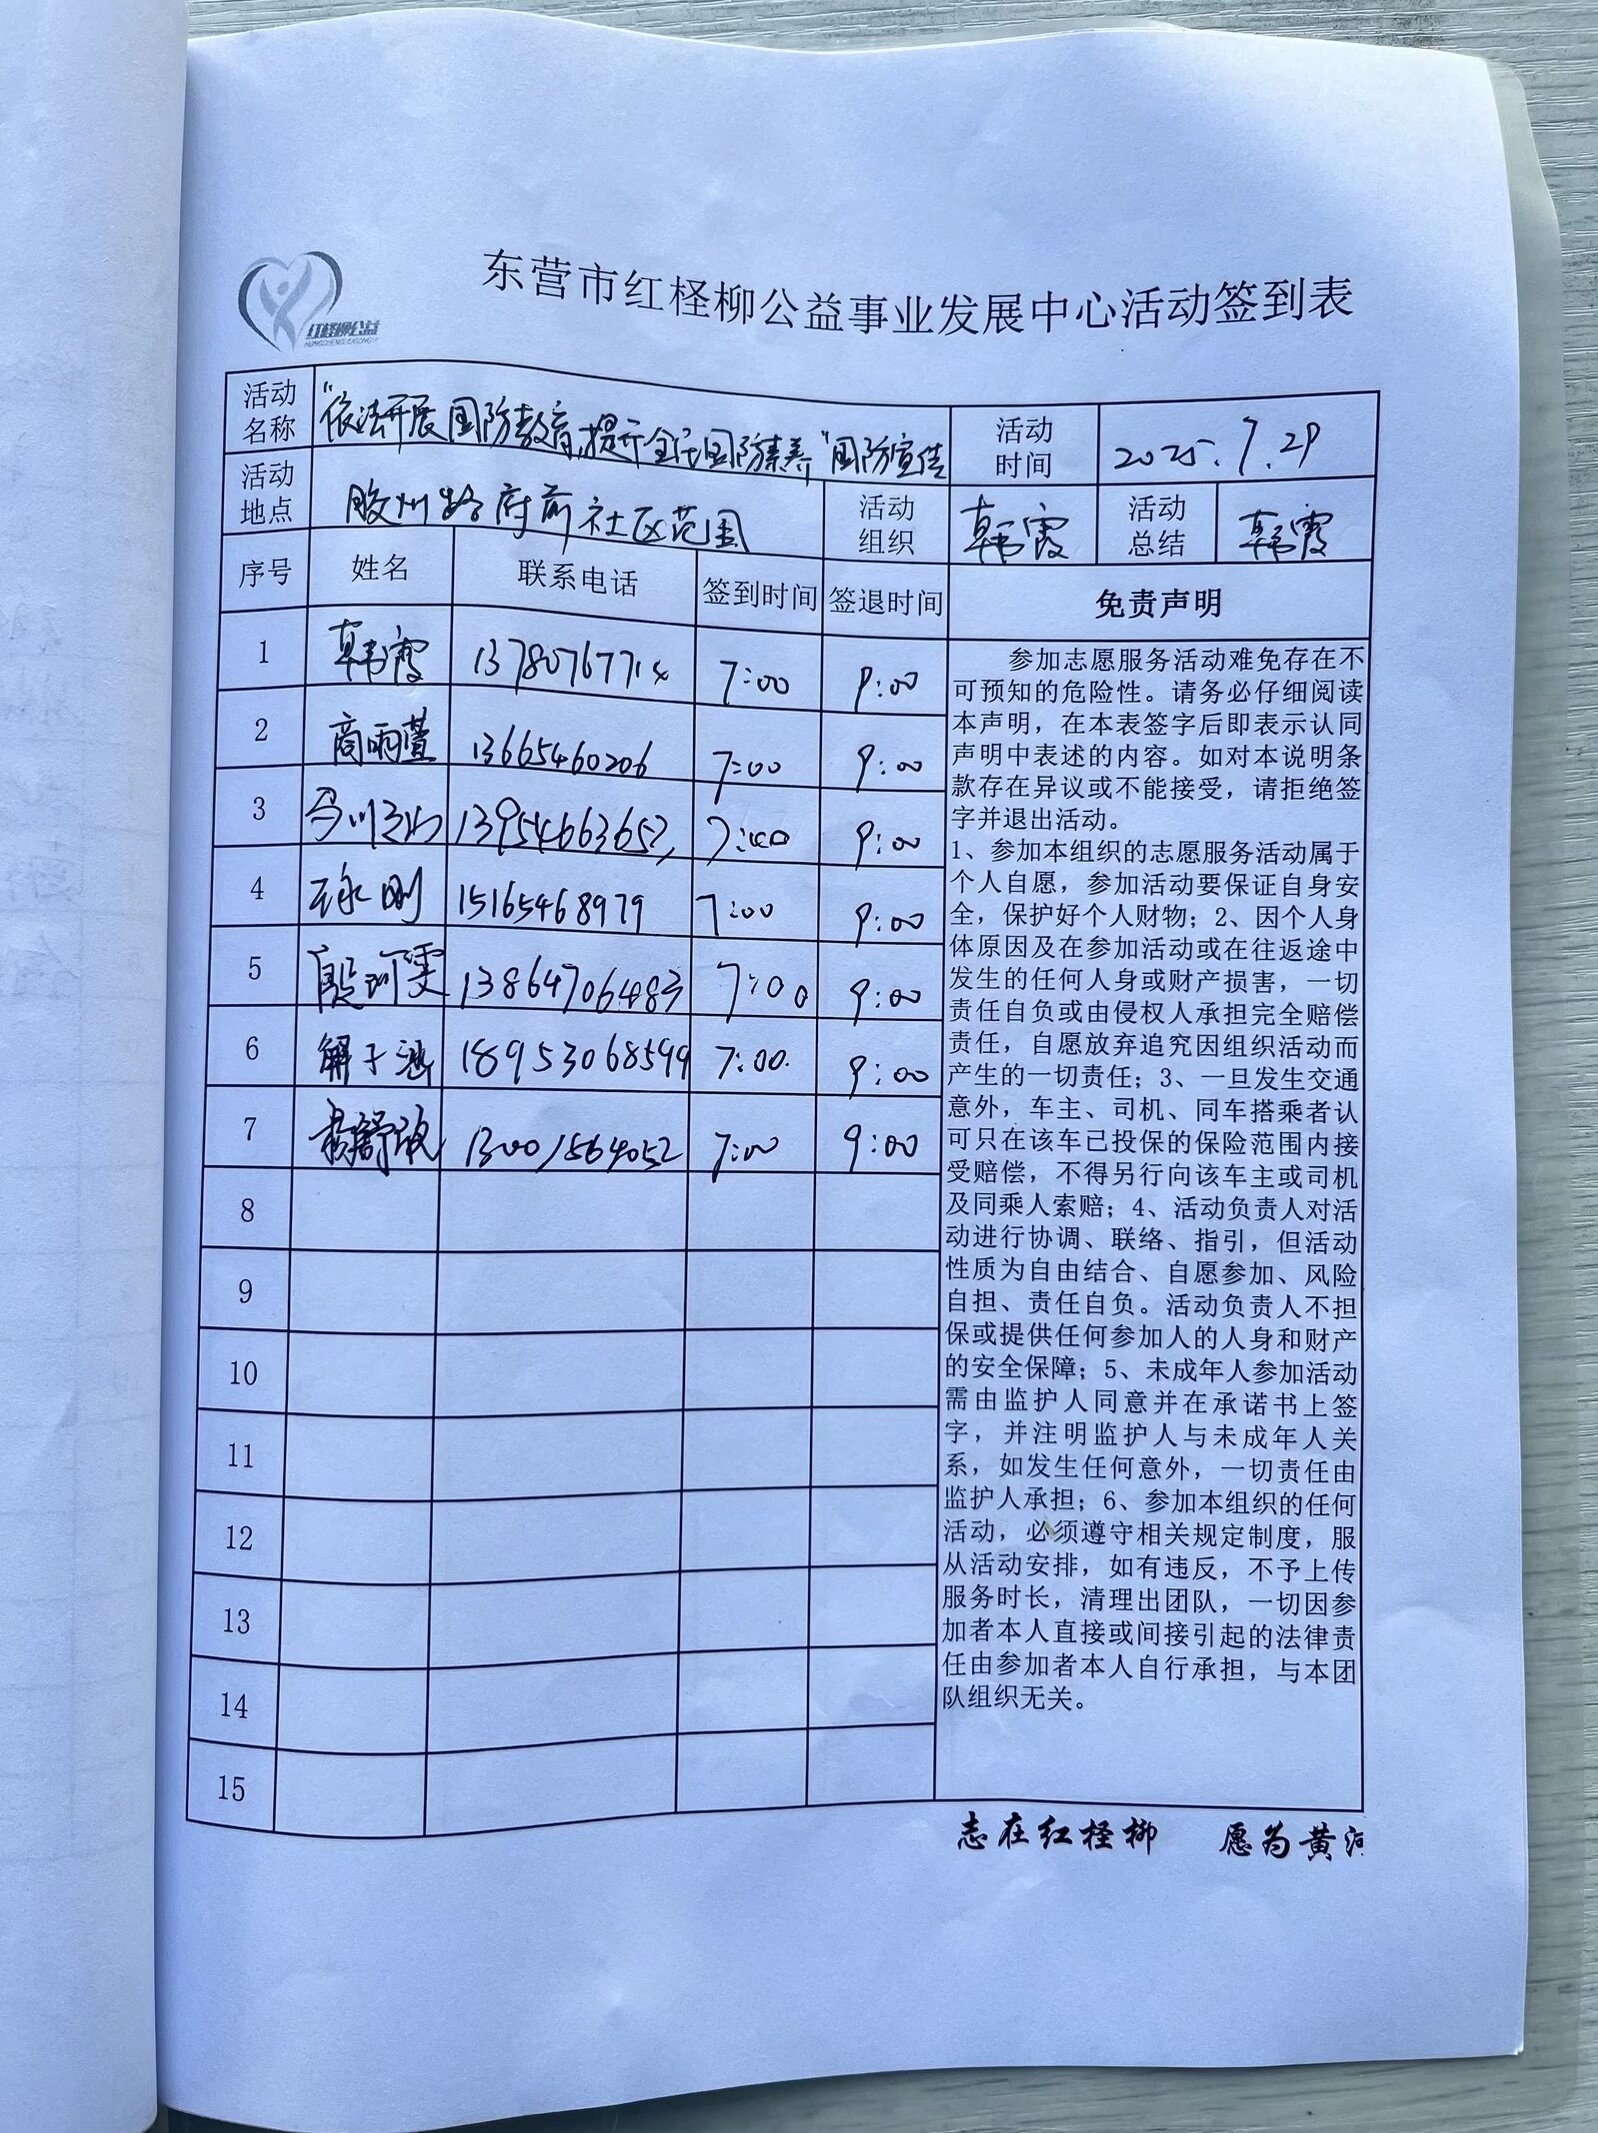 东营市红柽柳公益事业发展中心活动签到表
红柽柳公益
活动名称 "依法开展国防教育,提升全民国防素养"国防宣传 活动时间 2025.7.29
活动地点 胶州路府前社区范围 活动组织 韩霞 活动总结 韩霞
序号 姓名 联系电话 签到时间 签退时间 免责声明
1 韩霞 13780767714 7:00 9:00
2 商雨萱 13665460206 7:00 9:00
3 13954663652 7:00 9:00
4 15165468979 7:00 9:00
5 殷珂雯 13864706483 7:00 9:00
6 解子涵 18953068599 7:00 9:00
7 杨舒 13001564052 7:00 9:00
8
9
10
11
12
13
14
15
参加志愿服务活动难免存在不
可预知的危险性。请务必仔细阅读
本声明，在本表签字后即表示认同
声明中表述的内容。如对本说明条
款存在异议或不能接受，请拒绝签
字并退出活动。
1、参加本组织的志愿服务活动属于
个人自愿，参加活动要保证自身安
全，保护好个人财物；2、因个人身
体原因及在参加活动或在往返途中
发生的任何人身或财产损害，一切
责任自负或由侵权人承担完全赔偿
责任，自愿放弃追究因组织活动而
产生的一切责任；3、一旦发生交通
意外，车主、司机、同车搭乘者认
可只在该车已投保的保险范围内接
受赔偿，不得另行向该车主或司机
及同乘人索赔；4、活动负责人对活
动进行协调、联络、指引，但活动
性质为自由结合、自愿参加、风险
自担、责任自负。活动负责人不担
保或提供任何参加人的人身和财产
的安全保障；5、未成年人参加活动
需由监护人同意并在承诺书上签
字，并注明监护人与未成年人关
系，如发生任何意外，一切责任由
监护人承担；6、参加本组织的任何
活动，必须遵守相关规定制度，服
从活动安排，如有违反，不予上传
服务时长，清理出团队，一切因参
加者本人直接或间接引起的法律责
任由参加者本人自行承担，与本团
队组织无关。
志在红柽柳 愿为黄河